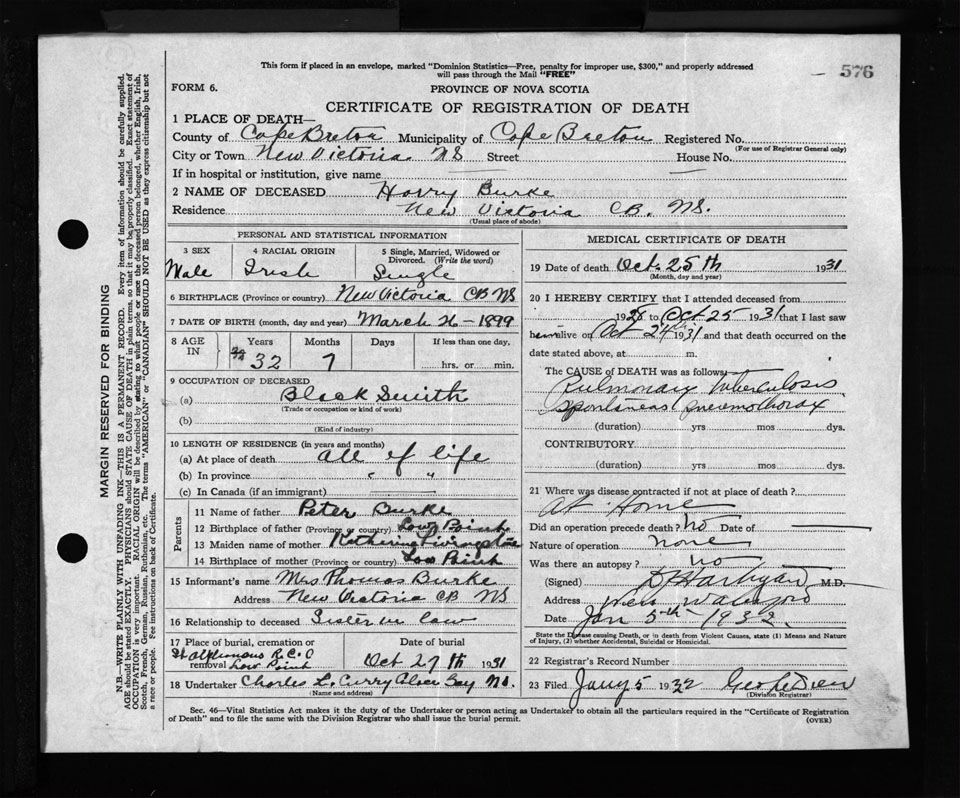 This form if placed in an envelope, marked "Dominion Statistics—Free, penalty for improper use, $300," and properly addressed
will pass through the Mail "FREE"
576
FORM 6.
PROVINCE OF NOVA SCOTIA
CERTIFICATE OF REGISTRATION OF DEATH
1 PLACE OF DEATH—
County of Cape Breton Municipality of Cape Breton Registered No.
(For use of Registrar General only)
City or Town New Victoria NS Street House No.
If in hospital or institution, give name
2 NAME OF DECEASED Harry Burke
Residence New Victoria CB. NS.
(Usual place of abode)
PERSONAL AND STATISTICAL INFORMATION
3 SEX Male
4 RACIAL ORIGIN Irish
5 Single, Married, Widowed or Divorced. (Write the word) Single
6 BIRTHPLACE (Province or country) New Victoria CB NS
7 DATE OF BIRTH (month, day and year) March 26-1899
8 AGE IN Years Months Days If less than one day.
32 7 hrs. or min.
9 OCCUPATION OF DECEASED
(a) Black Smith
(Trade or occupation or kind of work)
(b)
(Kind of industry)
10 LENGTH OF RESIDENCE (in years and months)
(a) At place of death all of life
(b) In province " "
(c) In Canada (if an immigrant)
Parents
11 Name of father Peter Burke
12 Birthplace of father (Province or country) Low Point
13 Maiden name of mother Katherine Livingstone
14 Birthplace of mother (Province or country) Low Point
15 Informant's name Mrs Thomas Burke
Address New Victoria CB NS
16 Relationship to deceased Sister in law
17 Place of burial, cremation or removal St Alphonsus R.C. Low Point
Date of burial Oct 27th 1931
18 Undertaker Charles L. Curry Glace Bay NS.
(Name and address)
MEDICAL CERTIFICATE OF DEATH
19 Date of death Oct. 25th 1931
(Month, day and year)
20 I HEREBY CERTIFY that I attended deceased from
1928 to Oct 25 1931 that I last saw
him alive on Oct 24th 1931 and that death occurred on the
date stated above, at m.
The CAUSE of DEATH was as follows:
Pulmonary Tuberculosis
Spontaneas pneumothorax
(duration) yrs mos dys.
CONTRIBUTORY
(duration) yrs mos dys.
21 Where was disease contracted if not at place of death?
At Home
Did an operation precede death? No Date of
Nature of operation none
Was there an autopsy? no
(Signed) M.D.
Address New Waterford
Date Jan 5th 1932.
State the Disease causing Death, or in death from Violent Causes, state (1) Means and Nature
of Injury, (2) whether Accidental, Suicidal or Homicidal.
22 Registrar's Record Number
23 Filed Jany 5 1932
(Division Registrar)
Sec. 46—Vital Statistics Act makes it the duty of the Undertaker or person acting as Undertaker to obtain all the particulars required in the "Certificate of Registration
of Death" and to file the same with the Division Registrar who shall issue the burial permit.
(OVER)
MARGIN RESERVED FOR BINDING
N.B.—WRITE PLAINLY WITH UNFADING INK—THIS IS A PERMANENT RECORD. Every item of information should be carefully supplied.
AGE should be stated EXACTLY. PHYSICIANS should STATE CAUSE OF DEATH in plain terms, so that it may be properly classified. Exact statement of
OCCUPATION is very important. RACIAL ORIGIN will be described by stating to what people or race the deceased person belonged, whether English, Irish,
Scotch, French, German, Russian, Ruthenian, etc. The terms "AMERICAN" or "CANADIAN" SHOULD NOT BE USED as they express citizenship but not
a race or people. Fee instructions on back of Certificate.